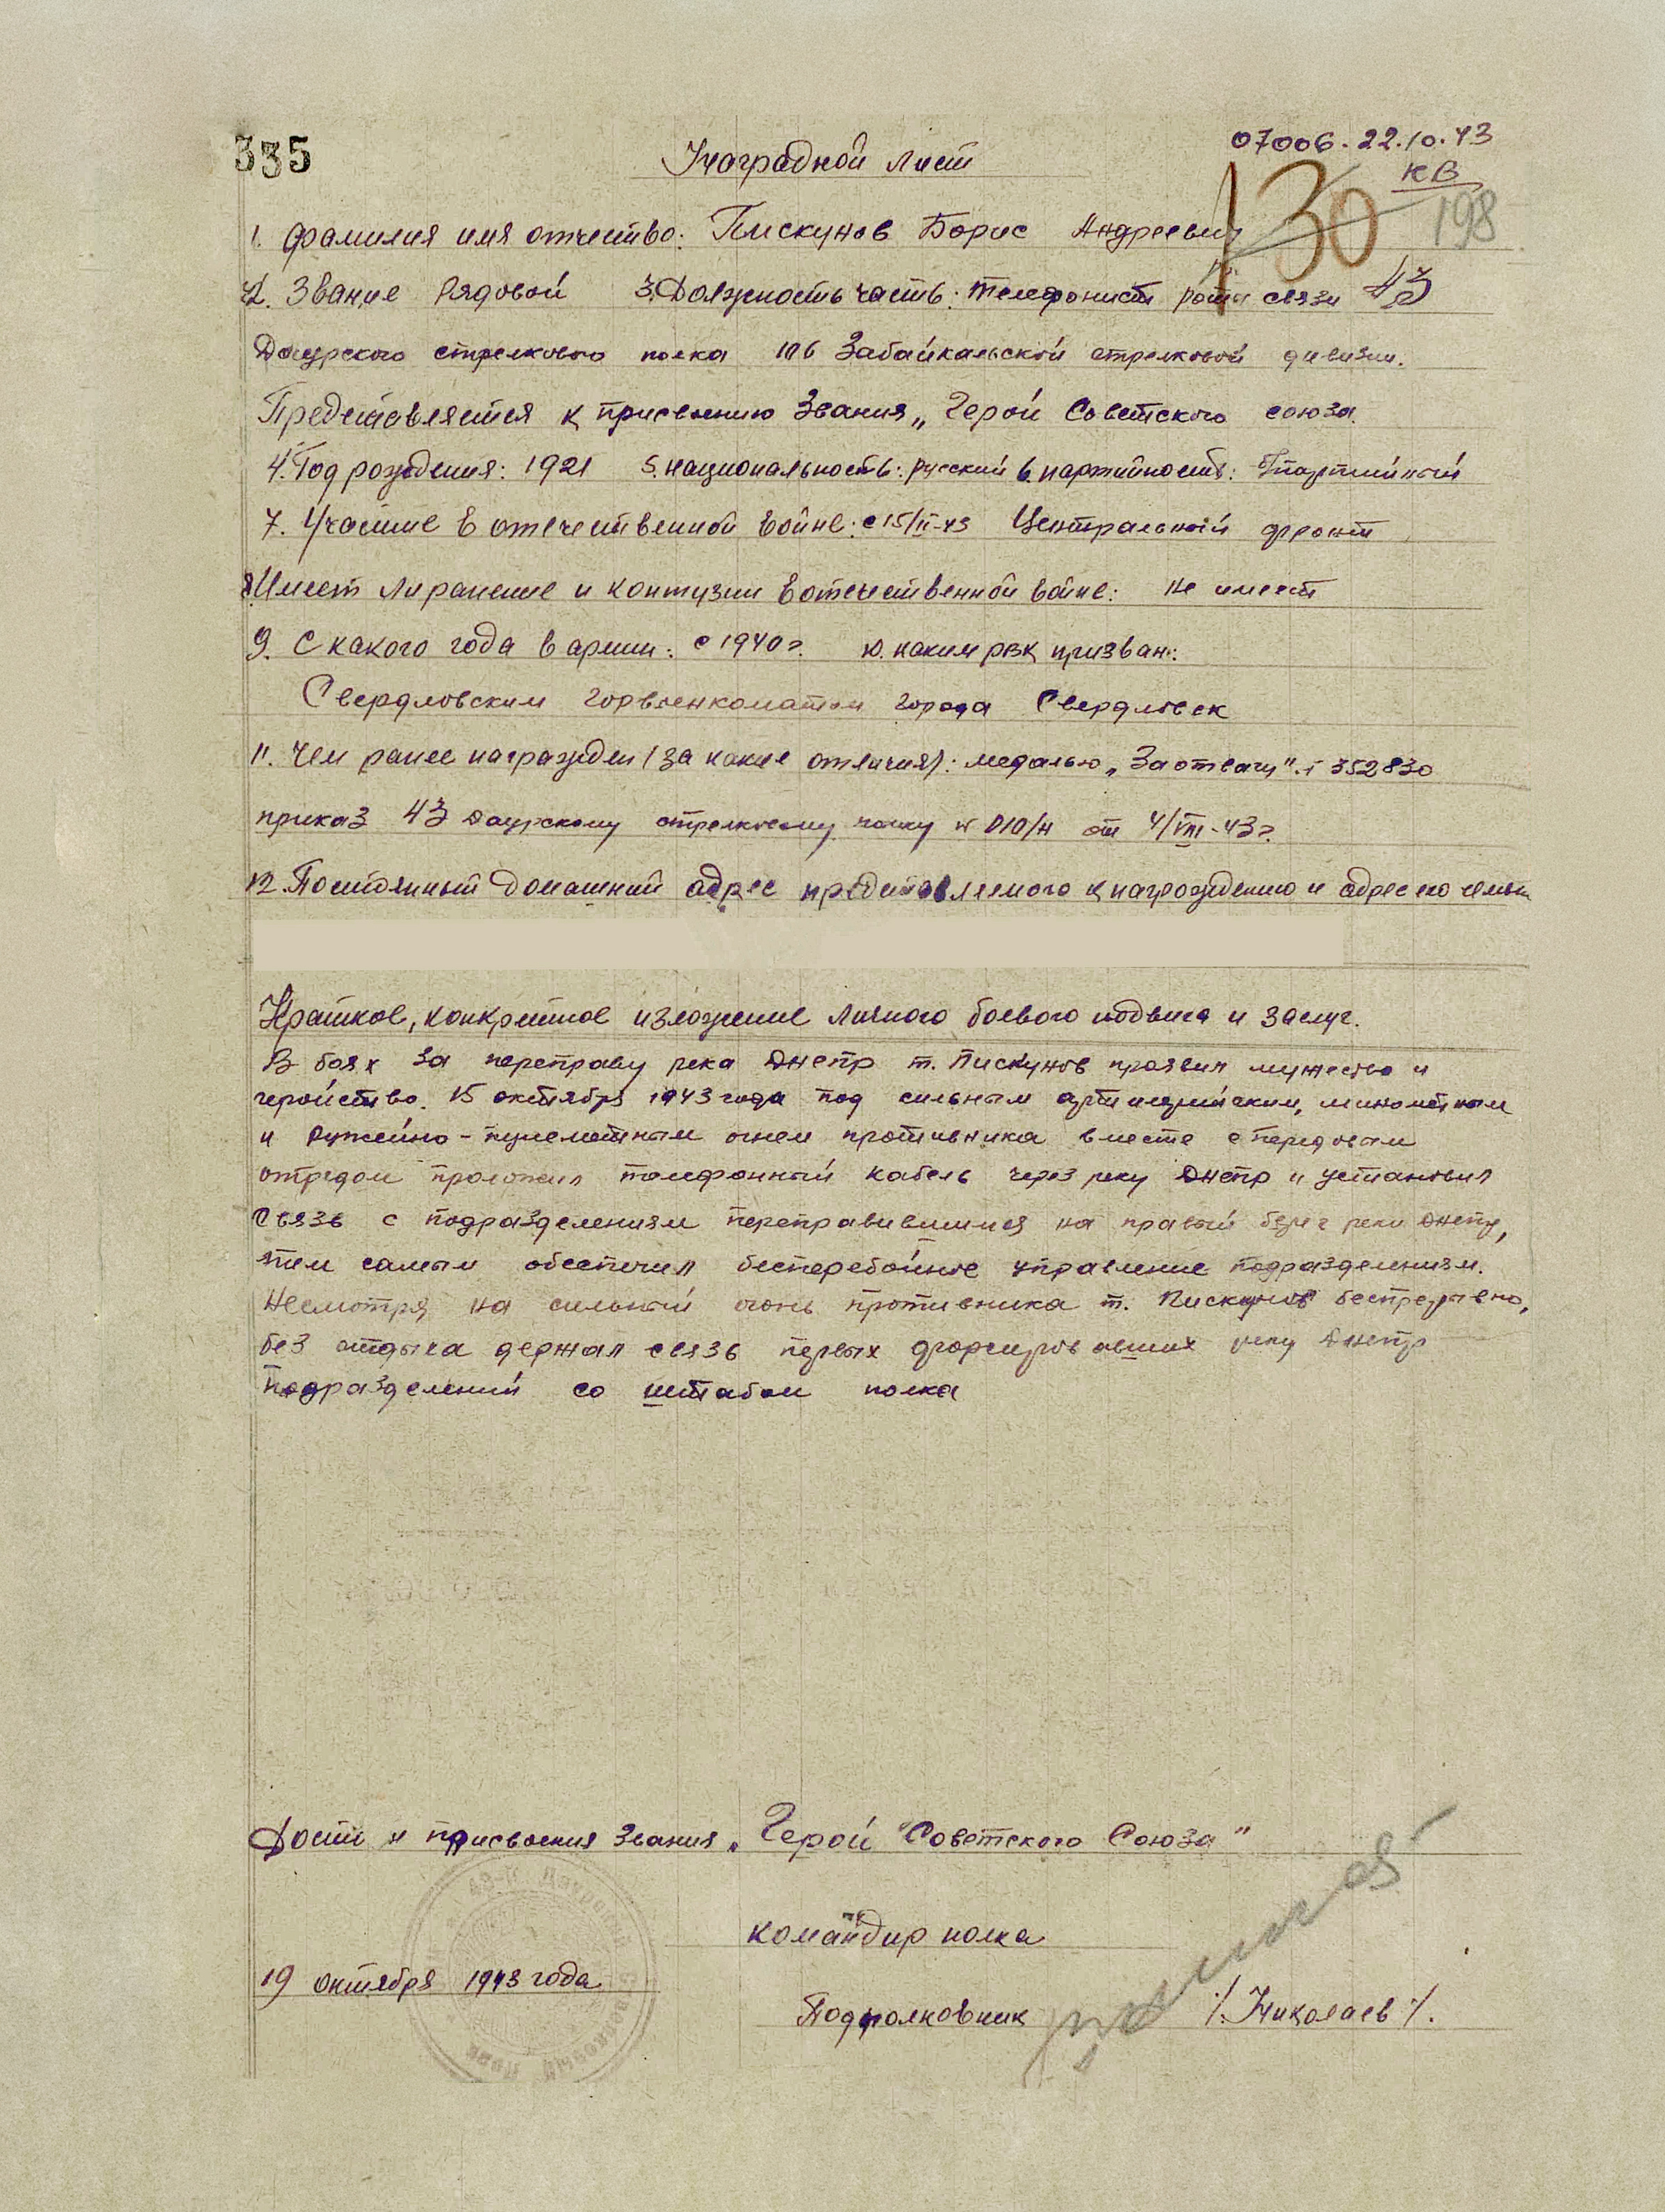 335
07006.22.10.43
КВ
Наградной лист
130
198
1. Фамилия имя отчество: Пискунов Борис Андреевич
2. Звание Рядовой 3. Должность часть: телефонист роты связи 43
Даурского стрелкового полка 106 Забайкальской стрелковой дивизии.
Представляется к присвоению Звания „Герой Советского союза.
4. Год рождения: 1921 5. национальность: русский 6. партийность:
7. Участие в отечественной войне: с 15/II-43 Центральный фронт
8. Имеет ли ранение и контузии в отечественной войне: не имеет
9. С какого года в армии: с 1940 г. 10. каким рвк призван:
Свердловским горвоенкоматом города Свердловск
11. Чем ранее награжден (за какие отличия): медалью „За отвагу". 352830
приказ 43 Даурскому стрелковому полку № 010/н от 4/VIII-43 г.
12. Постоянный домашний адрес представляемого к награждению и адрес его семьи
Краткое, конкретное изложение личного боевого подвига и заслуг.
В боях за переправу река Днепр т. Пискунов проявил мужество и
геройство. 15 октября 1943 года под сильным артиллерийским, минометным
и Ружейно-пулеметным огнем противника вместе с передовым
отрядом проложил телефонный кабель через реку Днепр и установил
связь с подразделениям переправившимся на правый берег реки Днепр,
тем самым обеспечил бесперебойное управление подразделениям.
Несмотря на сильный огонь противника т. Пискунов беспрерывно,
без отдыха держал связь первых форсировавших реку Днепр
подразделений со штабом полка
Достин присвоения Звания „Герой "Советского Союза"
командир полка
19 октября 1943 года
Подполковник /.Николаев/.